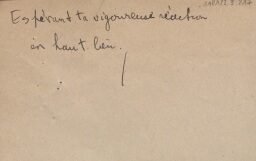 Espérant ta vigoureuse réaction
en haut-lieu.